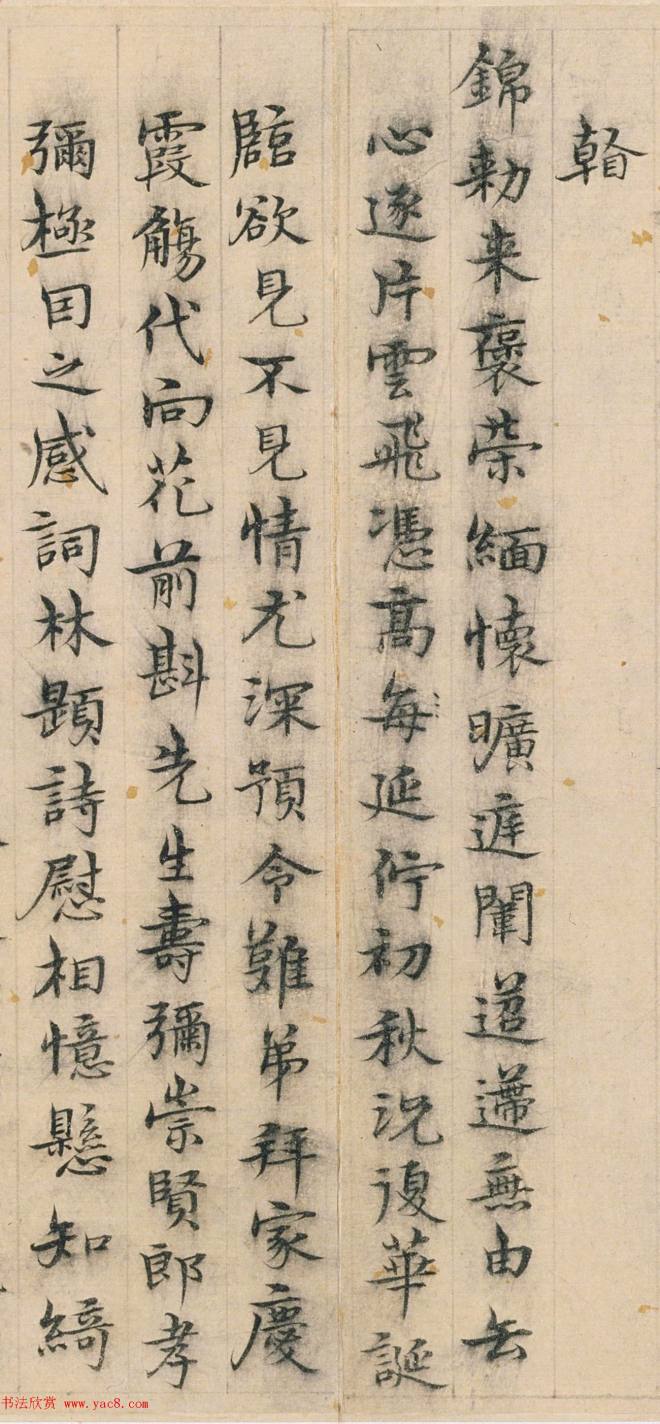 翰
錦勅来褒荣緬懷曠遲闈迢遰無由去
心逐片雲飛憑高每延佇初秋況復華誕
臨欲見不見情尤深預令難弟拜家慶
霞觴代向花前斟先生壽彌崇賢郎孝
彌極目之感詞林題詩慰相憶懸知綺
书法欣赏 www.yac8.com